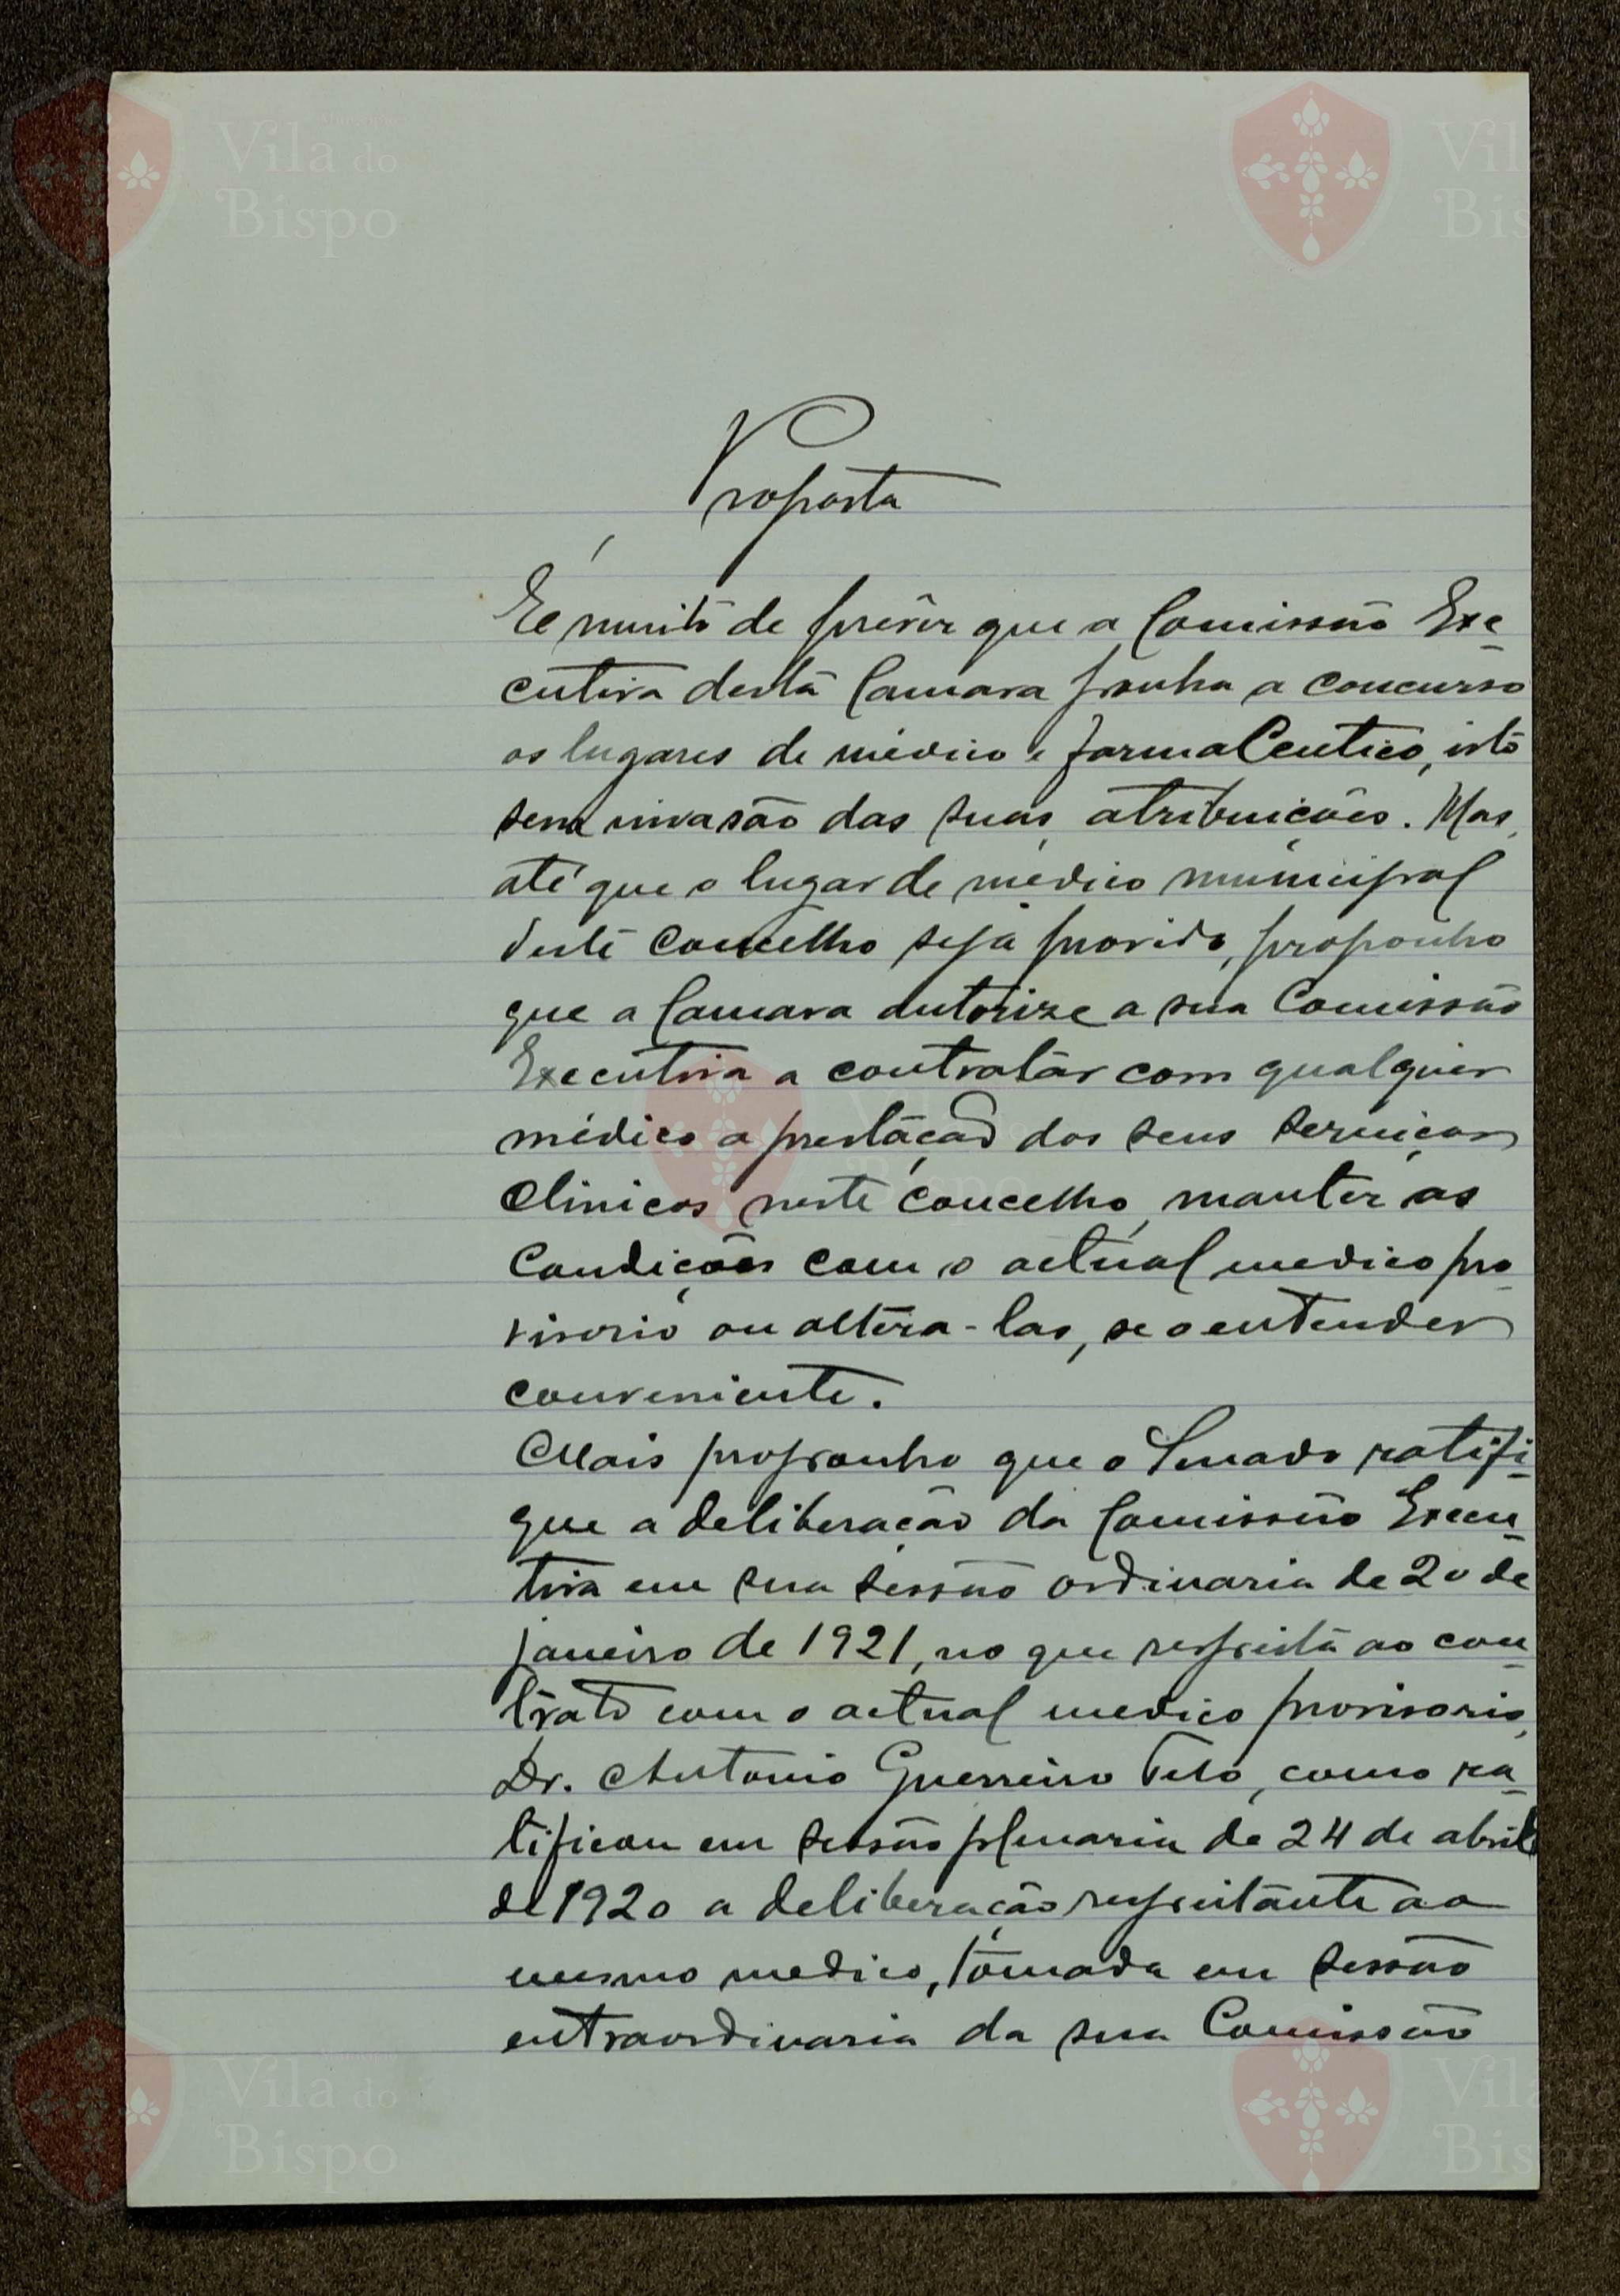 Proposta
É muito de prevêr que a Comissão Exe-
cutiva desta Camara ponha a concurso
os lugares de médico e farmaceutico, isto
sem invasão das suas atribuições. Mas,
até que o lugar de médico municipal
deste concelho seja provido, proponho
que a Camara autorize a sua Comissão
Executiva a contratar com qualquer
médico a prestação dos seus serviços
clinicos neste concelho, manter as
condições com o actual medico pro-
visorio ou altera-las, se o entender
conveniente.
Mais proponho que o Senado ratifi-
que a deliberação da Comissão Execu-
tiva em sua sessão ordinaria de 20 de
janeiro de 1921, no que respeita ao con-
trato com o actual medico provisorio,
Dr. Antonio Guerreiro Telo, como ra-
tificou em sessão plenaria de 24 de abril
de 1920 a deliberação respeitante ao
mesmo medico, tomada em sessão
extraordinaria da sua Comissão
Vila do
Bispo